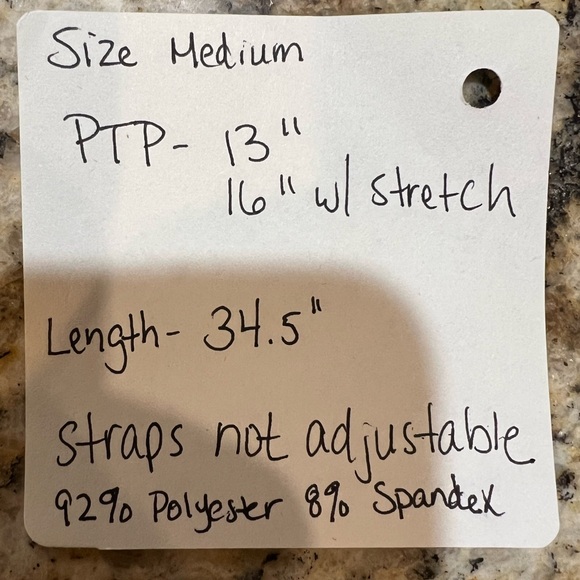 Size Medium
PTP- 13"
16" w/ stretch
Length- 34.5"
straps not adjustable
92% Polyester 8% Spandex